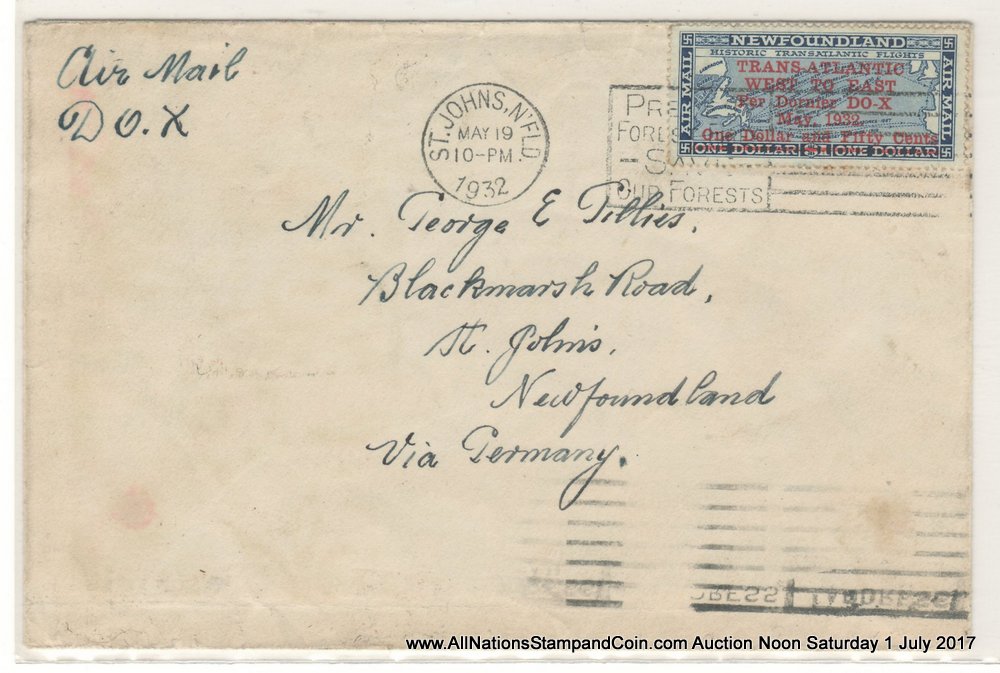 Air Mail
D O.X
ST. JOHNS, N'FLD.
MAY 19
10-PM
1932
NEWFOUNDLAND
HISTORIC TRANSATLANTIC FLIGHTS
AIR MAIL
AIR MAIL
TRANS-ATLANTIC
WEST TO EAST
Per Dornier DO-X
May, 1932.
One Dollar and Fifty Cents
ONE DOLLAR $1 ONE DOLLAR
OUR FORESTS
Mr. George E Tillies.
Blackmarsh Road,
St. John's.
Newfoundland
Via Germany.
www.AllNationsStampandCoin.com Auction Noon Saturday 1 July 2017